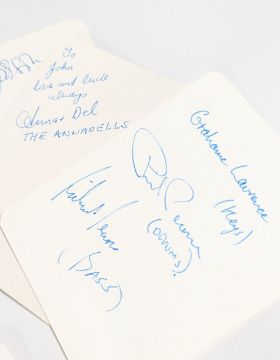 To
John
love and luck
always
Anna + Del
THE ANNADELLS
Grahame Lawrence
(Keys)
(DRUMS).
(BASS)